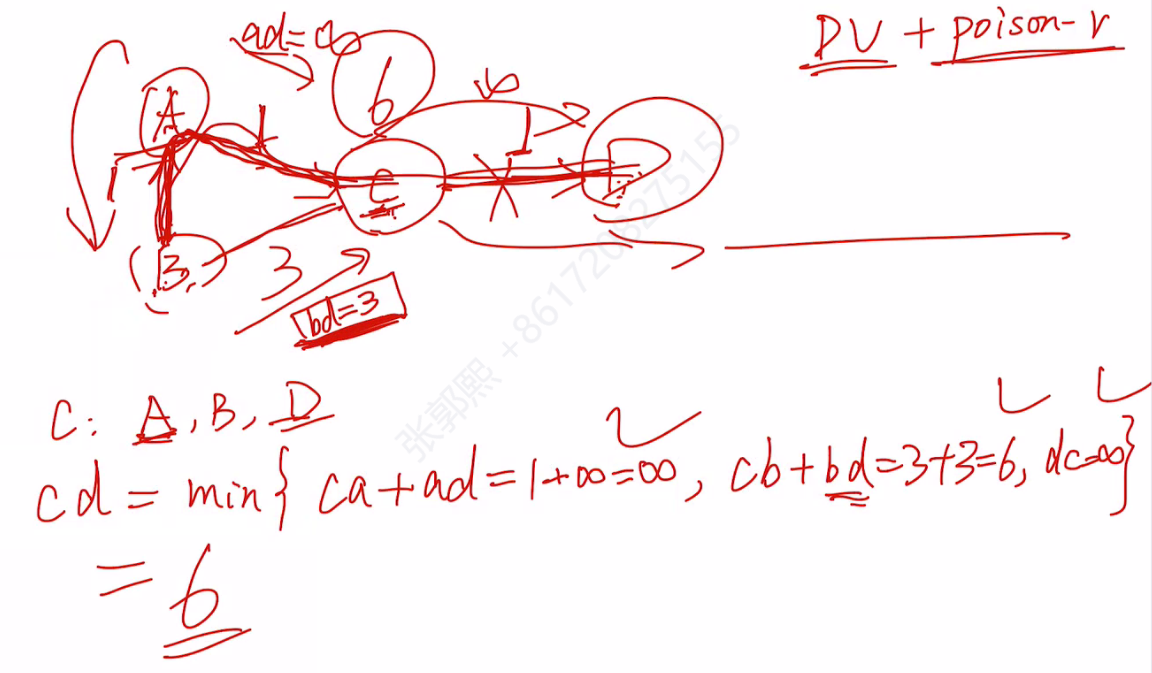 DV + poison-r
ad=∞
6
A
1
∞
1
C
D
1
B
3
bd=3
张郭熙 +8617208275155
C: A, B, D
cd = min{ ca+ad=1+∞=∞, cb+bd=3+3=6, dc=∞}
= 6